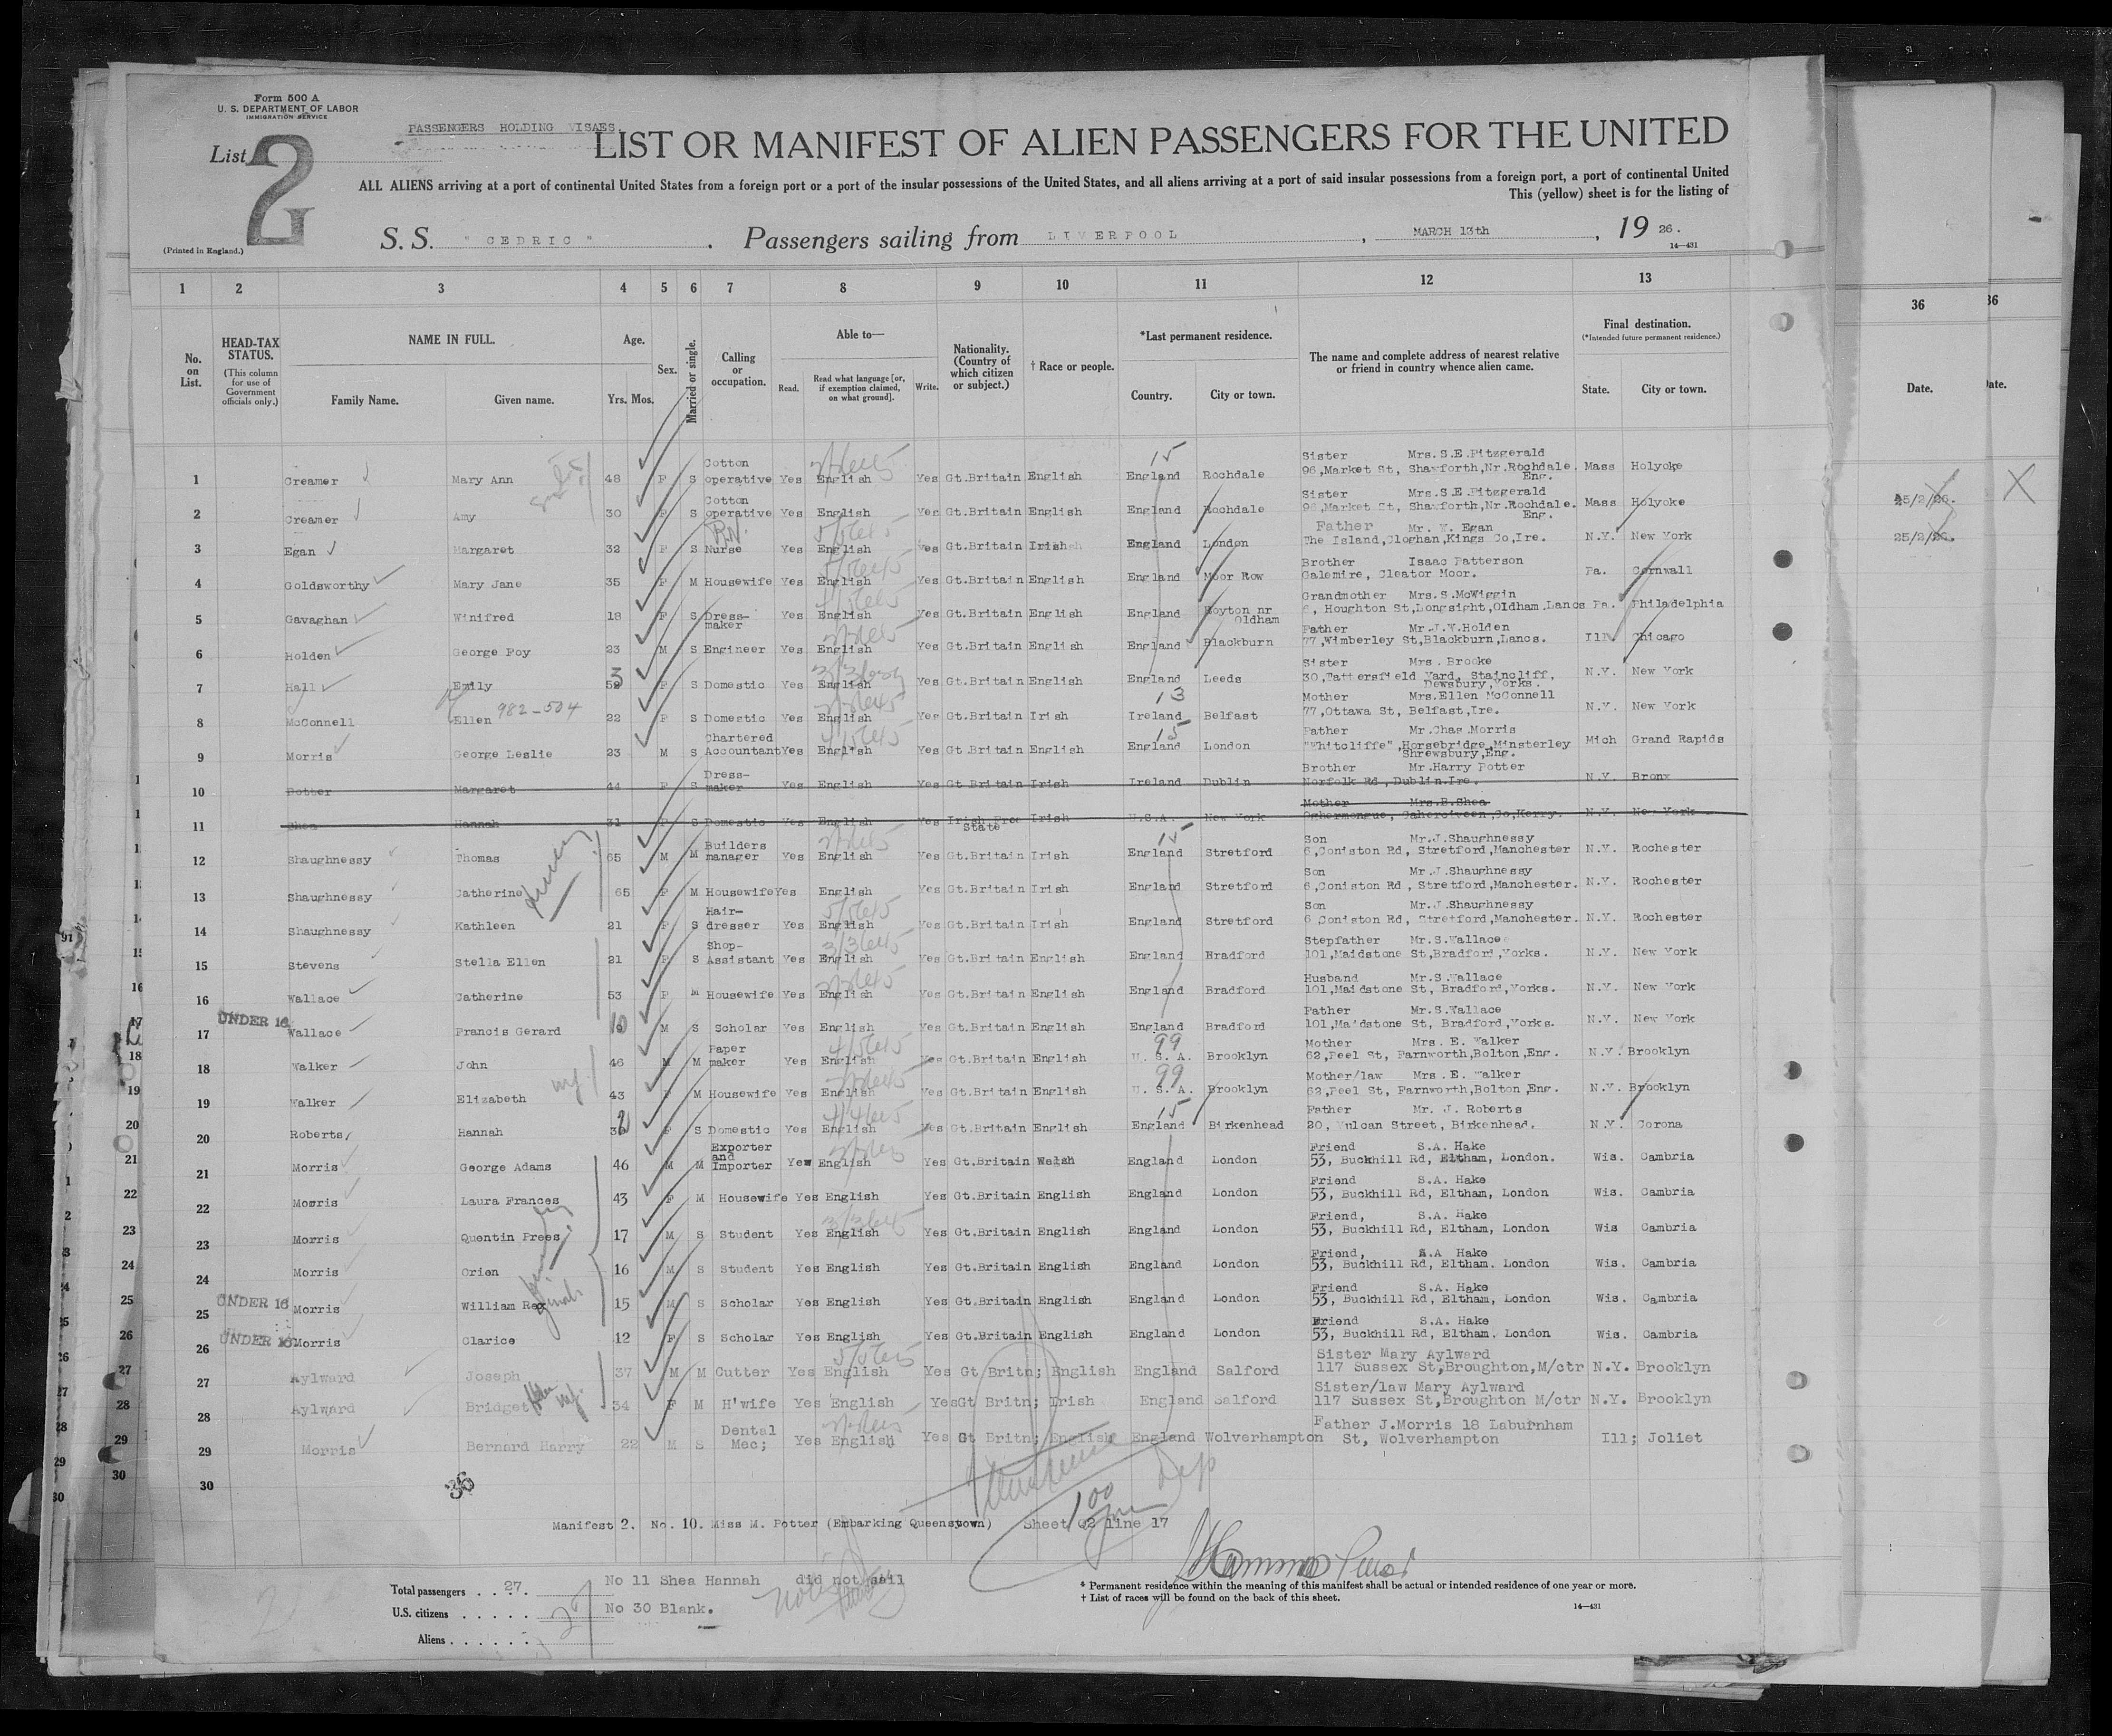 Form 500 A
U. S. DEPARTMENT OF LABOR
IMMIGRATION SERVICE
PASSENGERS HOLDING VISAES.
List 2
LIST OR MANIFEST OF ALIEN PASSENGERS FOR THE UNITED
ALL ALIENS arriving at a port of continental United States from a foreign port or a port of the insular possessions of the United States, and all aliens arriving at a port of said insular possessions from a foreign port, a port of continental United
This (yellow) sheet is for the listing of
(Printed in England.)
S. S. " CEDRIC " . Passengers sailing from LIVERPOOL , MARCH 13th , 19 26.
14—431
1 2 3 4 5 6 7 8 9 10 11 12 13
No. on List.
HEAD-TAX STATUS.
(This column for use of Government officials only.)
NAME IN FULL.
Family Name. Given name.
Age.
Yrs. Mos.
Sex.
Married or single.
Calling or occupation.
Able to—
Read. Read what language [or, if exemption claimed, on what ground]. Write.
Nationality. (Country of which citizen or subject.)
† Race or people.
*Last permanent residence.
Country. City or town.
The name and complete address of nearest relative or friend in country whence alien came.
Final destination.
(*Intended future permanent residence.)
State. City or town.
36
Date.
36
Date.
1 Creamer Mary Ann 48 F S Cotton operative Yes English Yes Gt.Britain English England Rochdale Sister Mrs.S.E.Fitzgerald 96,Market St, Shawforth,Nr.Rochdale. Eng. Mass Holyoke
2 Creamer Amy 30 F S Cotton operative Yes English Yes Gt.Britain English England Rochdale Sister Mrs.S.E.Fitzgerald 96,Market St, Shawforth,Nr.Rochdale. Eng. Mass Holyoke
25/2/26.
3 Egan Margaret 32 F S Nurse Yes English Yes Gt.Britain Irish England London Father Mr. Egan The Island,Cloghan,Kings Co,Ire. N.Y. New York
25/2/26.
4 Goldsworthy Mary Jane 35 F M Housewife Yes English Yes Gt.Britain English England Moor Row Brother Isaac Patterson Galemire, Cleator Moor. Pa. Cornwall
5 Gavaghan Winifred 18 F S Dress-maker Yes English Yes Gt.Britain English England Royton nr Oldham Grandmother Mrs.S.McWiggin 6, Houghton St,Longsight,Oldham.Lancs Pa. Philadelphia
6 Holden George Roy 23 M S Engineer Yes English Yes Gt.Britain English England Blackburn Father Mr.J.W.Holden 77,Wimberley St,Blackburn,Lancs. Ill. Chicago
7 Hall Emily 53 F S Domestic Yes English Yes Gt.Britain English England Leeds Sister Mrs. Brooke 30,Tattersfield Yard, Staincliff, Dewsbury,Yorks. N.Y. New York
8 McConnell Ellen 982-504 22 F S Domestic Yes English Yes Gt.Britain Irish Ireland Belfast Mother Mrs.Ellen McConnell 77,Ottawa St, Belfast,Ire. N.Y. New York
9 Morris George Leslie 23 M S Chartered Accountant Yes English Yes Gt.Britain English England London Father Mr.Chas.Morris "Whitcliffe",Horsebridge,Minsterley Shrewsbury,Eng. Mich Grand Rapids
10 Potter Margaret 44 F S Dress-maker Yes English Yes Gt.Britain Irish Ireland Dublin Brother Mr.Harry Potter Norfolk Rd, Dublin.Ire. N.Y. Bronx
11 Shea Hannah 31 F S Domestic Yes English Yes Irish Free State Irish U.S.A. New York Mother Mrs.B.Shea Oghermongue, Caherciveen,Co,Kerry. N.Y. New York
12 Shaughnessy Thomas 65 M M Builders manager Yes English Yes Gt.Britain Irish England Stretford Son Mr.J.Shaughnessy 6,Coniston Rd, Stretford,Manchester N.Y. Rochester
13 Shaughnessy Catherine 65 F M Housewife Yes English Yes Gt.Britain Irish England Stretford Son Mr.J.Shaughnessy 6,Coniston Rd, Stretford,Manchester. N.Y. Rochester
14 Shaughnessy Kathleen 21 F S Hair-dresser Yes English Yes Gt.Britain Irish England Stretford Son Mr.J.Shaughnessy 6 Coniston Rd, Stretford,Manchester. N.Y. Rochester
15 Stevens Stella Ellen 21 F S Shop-Assistant Yes English Yes Gt.Britain English England Bradford Stepfather Mr.S.Wallace 101,Maidstone St,Bradford,Yorks. N.Y. New York
16 Wallace Catherine 53 F M Housewife Yes English Yes Gt.Britain English England Bradford Husband Mr.S.Wallace 101,Maidstone St, Bradford,Yorks. N.Y. New York
17 UNDER 16 Wallace Francis Gerard 10 M S Scholar Yes English Yes Gt.Britain English England Bradford Father Mr.S.Wallace 101,Maidstone St, Bradford,Yorks. N.Y. New York
18 Walker John 46 M M Paper maker Yes English Yes Gt.Britain English U. S. A. Brooklyn Mother Mrs. E. Walker 62,Peel St, Farnworth,Bolton,Eng. N.Y. Brooklyn
19 Walker Elizabeth 43 F M Housewife Yes English Yes Gt.Britain English U. S. A. Brooklyn Mother/law Mrs. E. Walker 62,Peel St, Farnworth,Bolton,Eng. N.Y. Brooklyn
20 Roberts Hannah F S Domestic Yes English Yes Gt.Britain English England Birkenhead Father Mr. J. Roberts 20, Vulcan Street, Birkenhead. N.Y. Corona
21 Morris George Adams 46 M M Exporter and Importer Yes English Yes Gt.Britain Welsh England London Friend S.A. Hake 53, Buckhill Rd, Eltham, London. Wis. Cambria
22 Morris Laura Frances 43 F M Housewife Yes English Yes Gt.Britain English England London Friend S.A. Hake 53, Buckhill Rd, Eltham, London Wis. Cambria
23 Morris Quentin Prees 17 M S Student Yes English Yes Gt.Britain English England London Friend, S.A. Hake 53, Buckhill Rd, Eltham, London Wis Cambria
24 Morris Orien 16 M S Student Yes English Yes Gt.Britain English England London Friend, S.A Hake 53, Buckhill Rd, Eltham. London Wis. Cambria
25 UNDER 16 Morris William Rex 15 M S Scholar Yes English Yes Gt.Britain English England London Friend S.A. Hake 53, Buckhill Rd, Eltham, London Wis. Cambria
26 UNDER 16 Morris Clarice 12 F S Scholar Yes English Yes Gt.Britain English England London Friend S.A. Hake 53, Buckhill Rd, Eltham, London Wis. Cambria
27 Aylward Joseph 37 M M Cutter Yes English Yes Gt Britn; English England Salford Sister Mary Aylward 117 Sussex St,Broughton,M/ctr N.Y. Brooklyn
28 Aylward Bridget 34 F M H'wife Yes English Yes Gt Britn; Irish England Salford Sister/law Mary Aylward 117 Sussex St,Broughton M/ctr N.Y. Brooklyn
29 Morris Bernard Harry 22 M S Dental Mec; Yes English Yes Gt Britn; English England Wolverhampton Father J.Morris 18 Laburnham St, Wolverhampton Ill; Joliet
30
36
Manifest 2. No. 10. Miss M. Potter (Embarking Queenstown) Sheet Q2 line 17
Total passengers . . . 27.
No 11 Shea Hannah did not sail
U.S. citizens . . . . .
No 30 Blank.
Aliens . . . . . .
* Permanent residence within the meaning of this manifest shall be actual or intended residence of one year or more.
† List of races will be found on the back of this sheet.
14—431